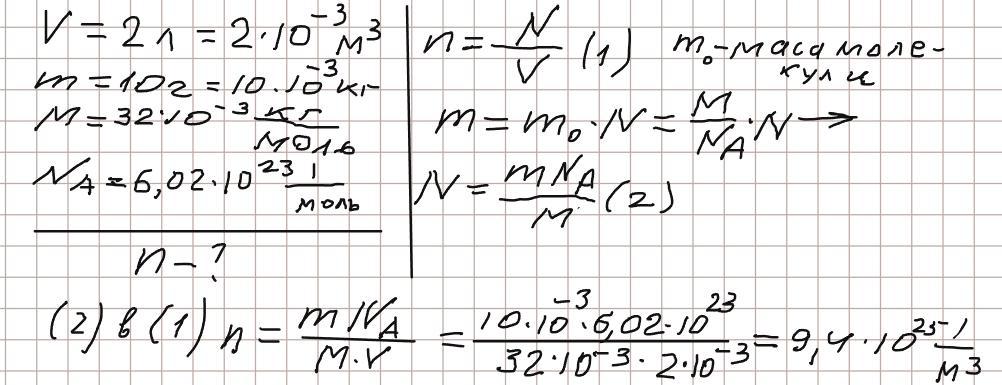 V = 2 л = 2·10⁻³ м³
m = 10 г = 10·10⁻³ кг
M = 32·10⁻³ кг/моль
N_A = 6,02·10²³ 1/моль
n - ?
n = N/V (1) m₀ - маса молекули
m = m₀·N = M/N_A · N →
N = mN_A/M (2)
(2) в (1) n = mN_A/M·V = 10·10⁻³·6,02·10²³/32·10⁻³·2·10⁻³ = 9,4·10²⁵ 1/м³